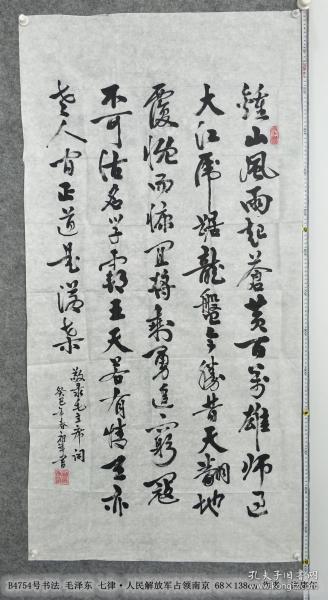 鍾山風雨起蒼黄百萬雄師过
大江虎踞龍盤今勝昔天翻地
覆慨而慷宜將剩勇追窮寇
不可沽名学霸王天若有情天亦
老人间正道是滄桑
敬录毛主席词
癸巳年春
B4754号书法 毛泽东 七律·人民解放军占领南京 68×138cm
孔夫子旧书网